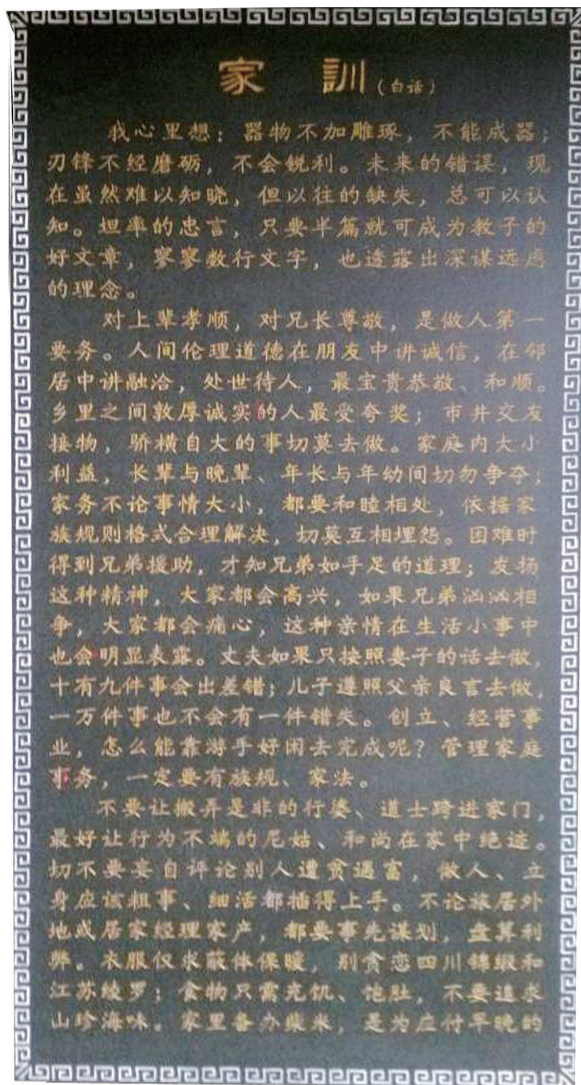 家 訓(白话)
我心里想：器物不加雕琢，不能成器；
刃锋不经磨砺，不会锐利。未来的错误，现
在虽然难以知晓，但以往的缺失，总可以认
知。坦率的忠言，只要半篇就可成为教子的
好文章，寥寥数行文字，也透露出深谋远虑
的理念。
对上辈孝顺，对兄长尊敬，是做人第一
要务。人间伦理道德在朋友中讲诚信，在邻
居中讲融洽，处世待人，最宝贵恭敬、和顺。
乡里之间敦厚诚实的人最受夸奖；市井交友
接物，骄横自大的事切莫去做。家庭内大小
利益，长辈与晚辈、年长与年幼间切勿争夺；
家务不论事情大小，都要和睦相处，依据家
族规则格式合理解决，切莫互相埋怨。困难时
得到兄弟援助，才知兄弟如手足的道理；发扬
这种精神，大家都会高兴，如果兄弟汹汹相
争，大家都会痛心，这种亲情在生活小事中
也会明显表露。丈夫如果只按照妻子的话去做，
十有九件事会出差错；儿子遵照父亲良言去做，
一万件事也不会有一件错失。创立、经营事
业，怎么能靠游手好闲去完成呢？管理家庭
事务，一定要有族规、家法。
不要让搬弄是非的行婆、道士跨进家门，
最好让行为不端的尼姑、和尚在家中绝迹。
切不要妄自评论别人遭贫遇富，做人、立
身应该粗事、细活都插得上手。不论旅居外
地或居家经理家产，都要事先谋划，盘算利
弊。衣服仅求蔽体保暖，别贪恋四川锦缎和
江苏绫罗；食物只需充饥、饱肚，不要追求
山珍海味。家里备办柴米，是为应付早晚的